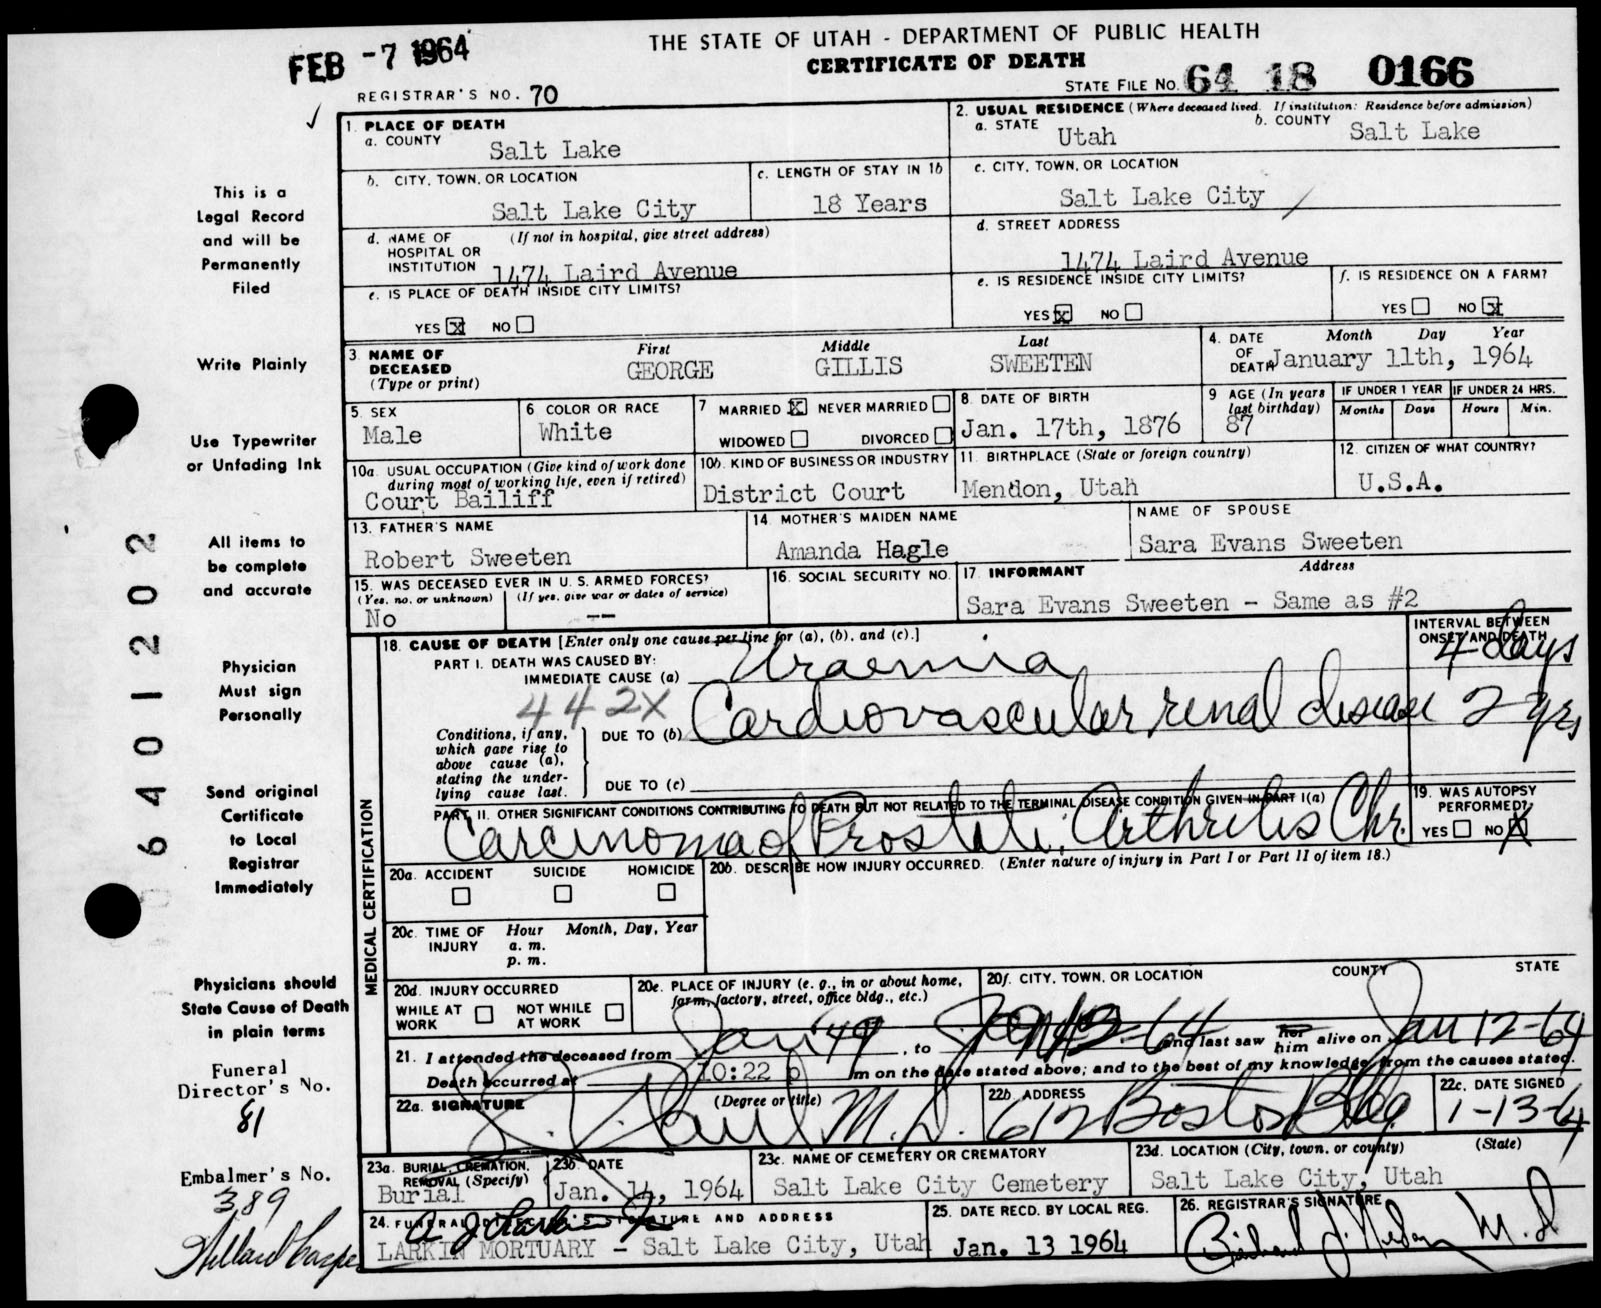 FEB -7 1964
THE STATE OF UTAH - DEPARTMENT OF PUBLIC HEALTH
CERTIFICATE OF DEATH
STATE FILE NO. 64 18 0166
REGISTRAR'S NO. 70
1. PLACE OF DEATH
a. COUNTY
Salt Lake
2. USUAL RESIDENCE (Where deceased lived. If institution: Residence before admission)
a. STATE Utah
b. COUNTY Salt Lake
b. CITY, TOWN, OR LOCATION
Salt Lake City
c. LENGTH OF STAY IN 1b
18 Years
c. CITY, TOWN, OR LOCATION
Salt Lake City
d. NAME OF HOSPITAL OR INSTITUTION (If not in hospital, give street address)
1474 Laird Avenue
d. STREET ADDRESS
1474 Laird Avenue
e. IS PLACE OF DEATH INSIDE CITY LIMITS?
YES X NO
e. IS RESIDENCE INSIDE CITY LIMITS?
YES X NO
f. IS RESIDENCE ON A FARM?
YES NO X
3. NAME OF DECEASED (Type or print)
First Middle Last
GEORGE GILLIS SWEETEN
4. DATE OF DEATH
Month Day Year
January 11th, 1964
5. SEX
Male
6 COLOR OR RACE
White
7 MARRIED X NEVER MARRIED
WIDOWED DIVORCED
8. DATE OF BIRTH
Jan. 17th, 1876
9 AGE (In years last birthday)
87
IF UNDER 1 YEAR
Months Days
IF UNDER 24 HRS.
Hours Min.
10a. USUAL OCCUPATION (Give kind of work done during most of working life, even if retired)
Court Bailiff
10b. KIND OF BUSINESS OR INDUSTRY
District Court
11. BIRTHPLACE (State or foreign country)
Mendon, Utah
12. CITIZEN OF WHAT COUNTRY?
U.S.A.
13. FATHER'S NAME
Robert Sweeten
14. MOTHER'S MAIDEN NAME
Amanda Hagle
NAME OF SPOUSE
Sara Evans Sweeten
15. WAS DECEASED EVER IN U. S. ARMED FORCES?
(Yes, no, or unknown) (If yes, give war or dates of service)
No --
16. SOCIAL SECURITY NO.
17. INFORMANT Address
Sara Evans Sweeten - Same as #2
18. CAUSE OF DEATH [Enter only one cause per line for (a), (b), and (c).]
INTERVAL BETWEEN ONSET AND DEATH
PART I. DEATH WAS CAUSED BY:
IMMEDIATE CAUSE (a) Uraemia 4 days
442X
Conditions, if any, which gave rise to above cause (a), stating the underlying cause last.
DUE TO (b) Cardiovascular renal disease 2 yrs
DUE TO (c)
PART II. OTHER SIGNIFICANT CONDITIONS CONTRIBUTING TO DEATH BUT NOT RELATED TO THE TERMINAL DISEASE CONDITION GIVEN IN PART I(a)
Carcinoma of Prostate, Arthritis Chr.
19. WAS AUTOPSY PERFORMED?
YES NO X
MEDICAL CERTIFICATION
20a. ACCIDENT SUICIDE HOMICIDE
20b. DESCRIBE HOW INJURY OCCURRED. (Enter nature of injury in Part I or Part II of item 18.)
20c. TIME OF INJURY Hour Month, Day, Year
a. m.
p. m.
20d. INJURY OCCURRED
WHILE AT WORK NOT WHILE AT WORK
20e. PLACE OF INJURY (e. g., in or about home, farm, factory, street, office bldg., etc.)
20f. CITY, TOWN, OR LOCATION COUNTY STATE
21. I attended the deceased from Jan 49, to Jan 12-64 and last saw her him alive on Jan 12-64
Death occurred at 10:22 p m on the date stated above; and to the best of my knowledge, from the causes stated.
22a. SIGNATURE (Degree or title)
M.D.
22b ADDRESS
612 Boston Bldg
22c. DATE SIGNED
1-13-64
23a. BURIAL, CREMATION, REMOVAL (Specify)
Burial
23b. DATE
Jan. 14, 1964
23c. NAME OF CEMETERY OR CREMATORY
Salt Lake City Cemetery
23d. LOCATION (City, town, or county) (State)
Salt Lake City, Utah
24. FUNERAL DIRECTOR'S SIGNATURE AND ADDRESS
LARKIN MORTUARY - Salt Lake City, Utah
25. DATE RECD. BY LOCAL REG.
Jan. 13 1964
26. REGISTRAR'S SIGNATURE
M.D.
This is a
Legal Record
and will be
Permanently
Filed
Write Plainly
Use Typewriter
or Unfading Ink
All items to
be complete
and accurate
Physician
Must sign
Personally
Send original
Certificate
to Local
Registrar
Immediately
Physicians should
State Cause of Death
in plain terms
Funeral
Director's No.
81
Embalmer's No.
389
6401202